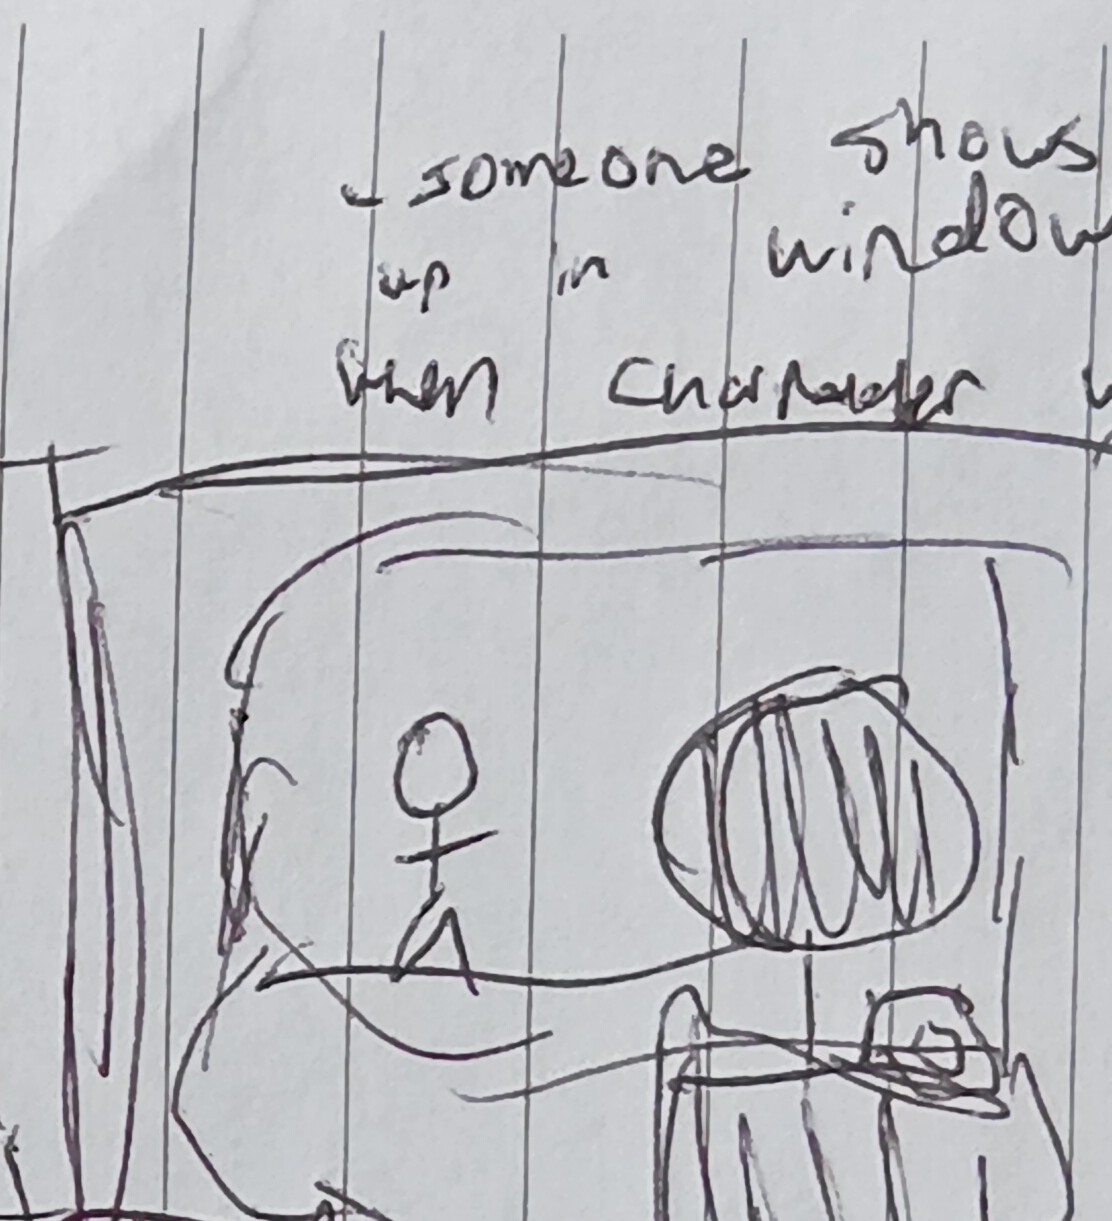 - someone shows
up in window
when character